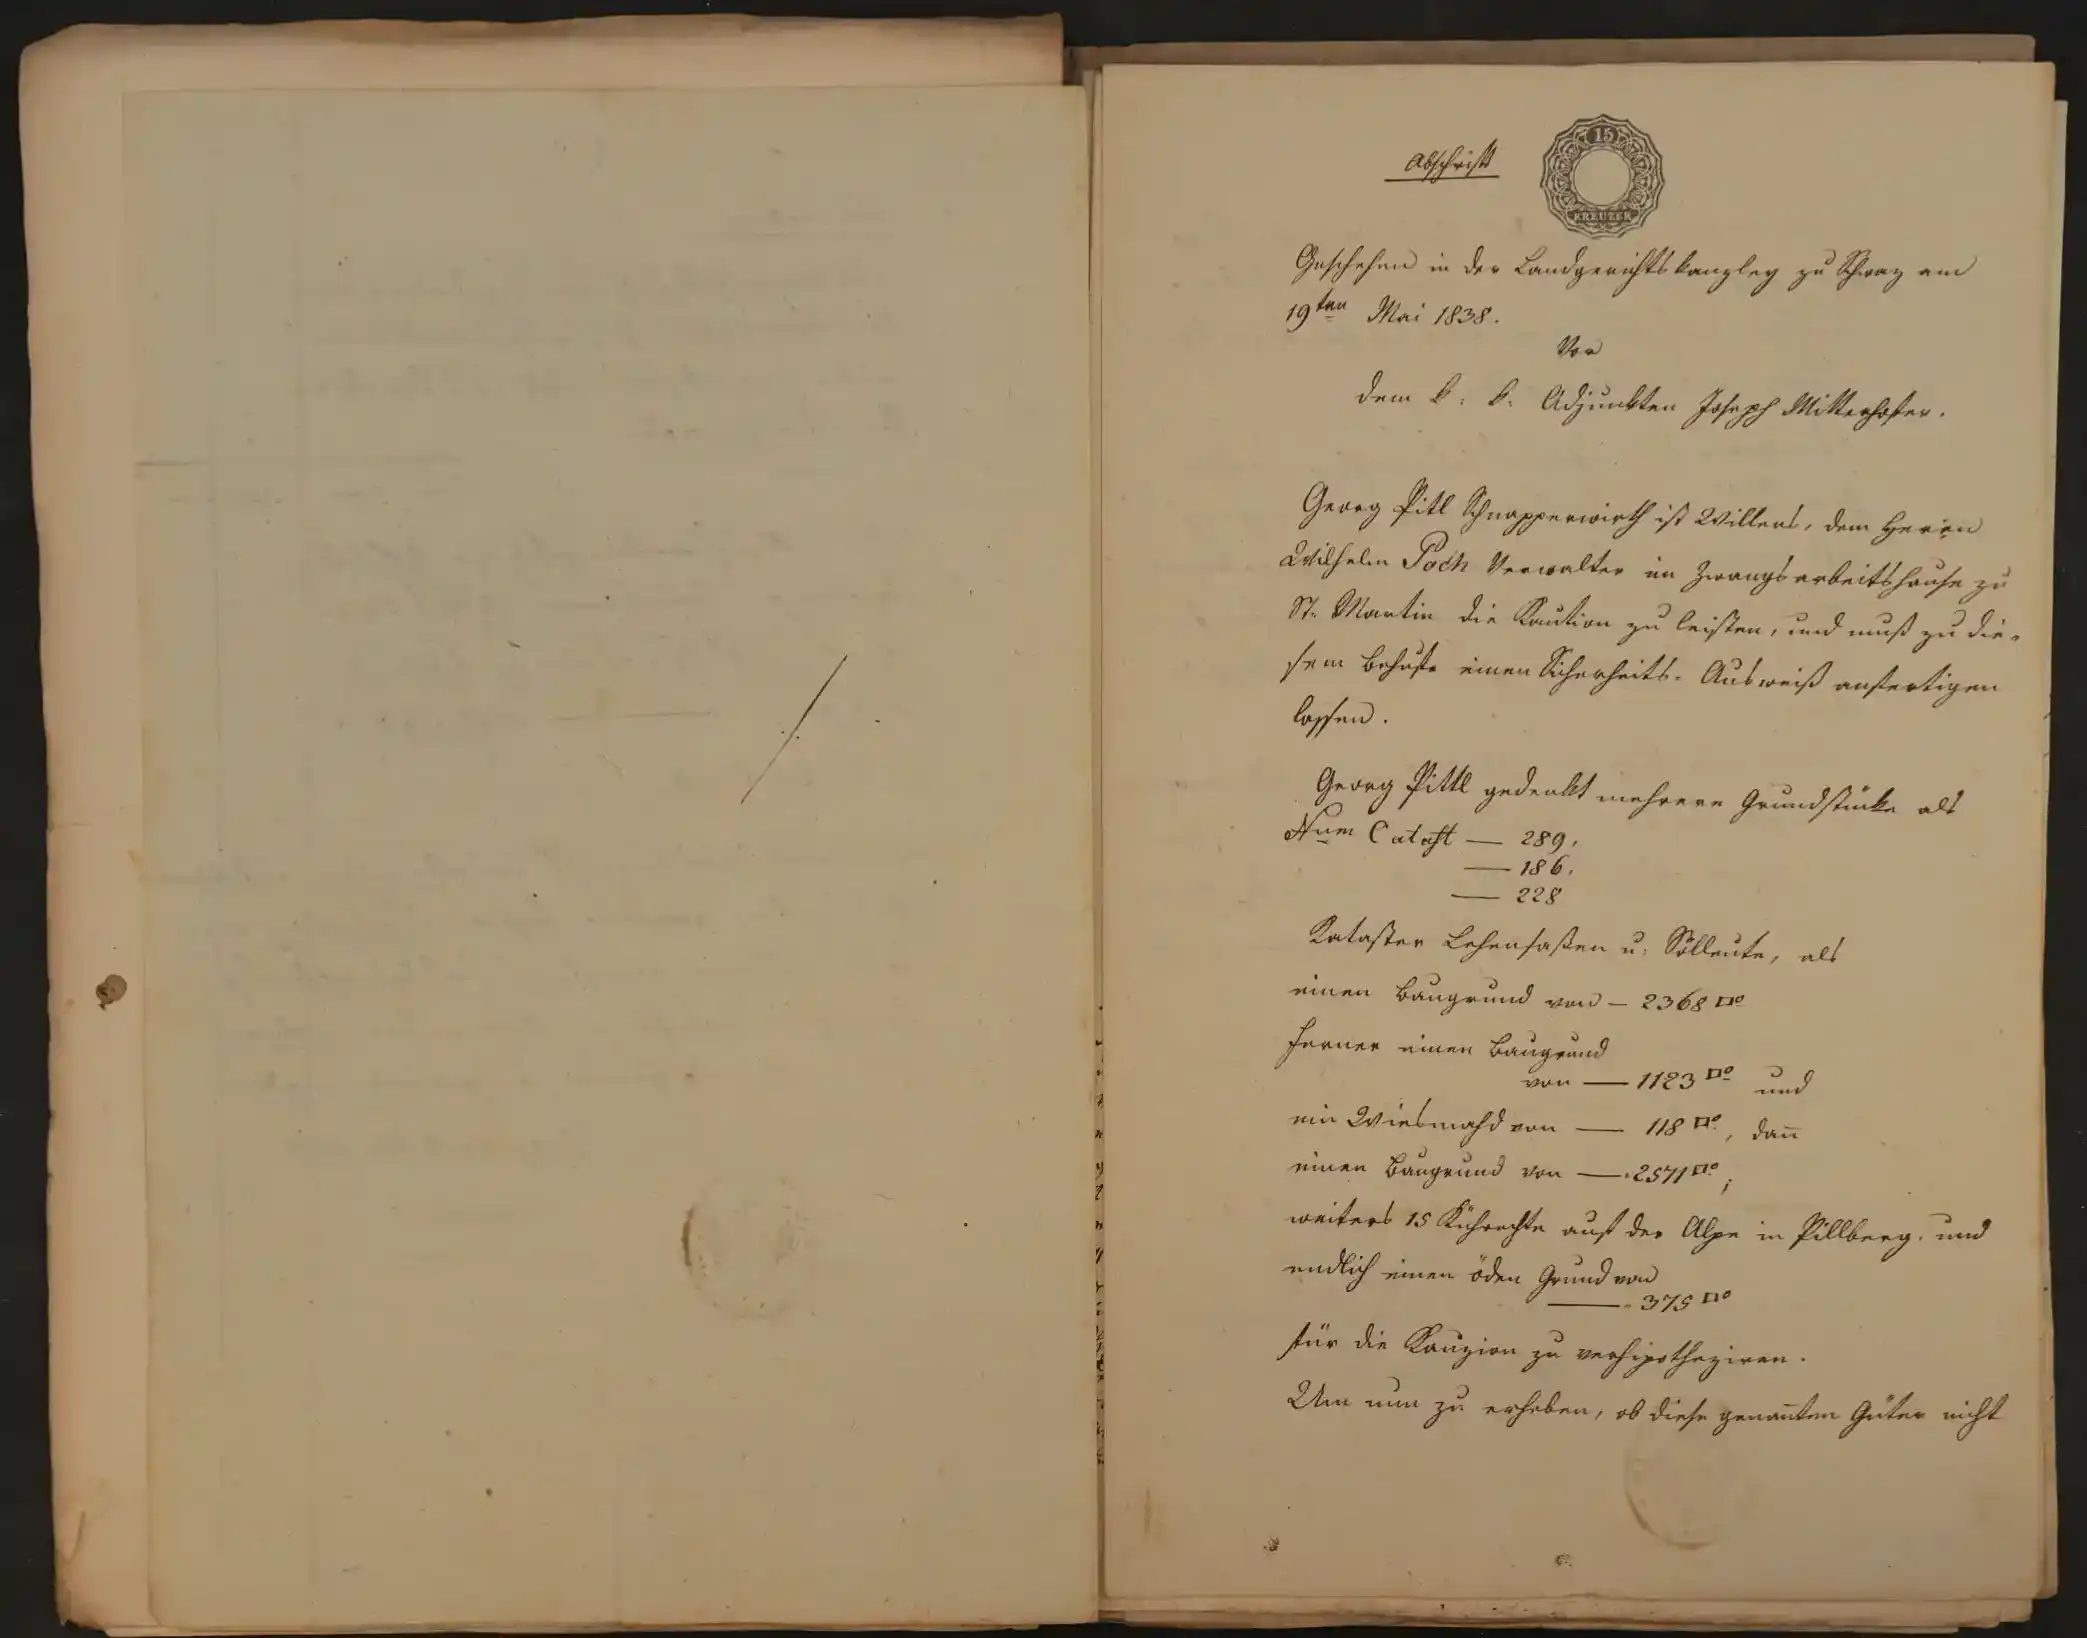 Abschrift
15
KREUZER
Geschehen in der Landgerichtskanzley zu Schwaz am
19ten Mai 1838.
Vor
dem k: k: Adjunkten Joseph Mitterhofer.
Georg Pitl Schnapperwirth ist Willens, dem Herrn
Wilhelm Poch Verwalter im Zwangsarbeitshause zu
St. Martin die Kaution zu leisten, und muß zu die-
sem Behufe einen Sicherheits-Ausweiß ausfertigen
lassen.
Georg Pittl gedenkt mehrere Grundstücke als
Num Catast — 289,
— 186,
— 228
Kataster Lehensassen u: Sölleute, als
einen Baugrund von — 2368 □°
ferner einen Baugrund
von — 1123 □° und
ein Wiesmahd von — 118 □°, dan̄
einen Baugrund von — 2571 □°;
weiters 15 Kührechte auf der Alpe in Pillberg, und
endlich einen öden Grund von
— 375 □°
für die Kauzion zu verhipotheziren.
Um nun zu erheben, ob diese genan̄ten Güter nicht